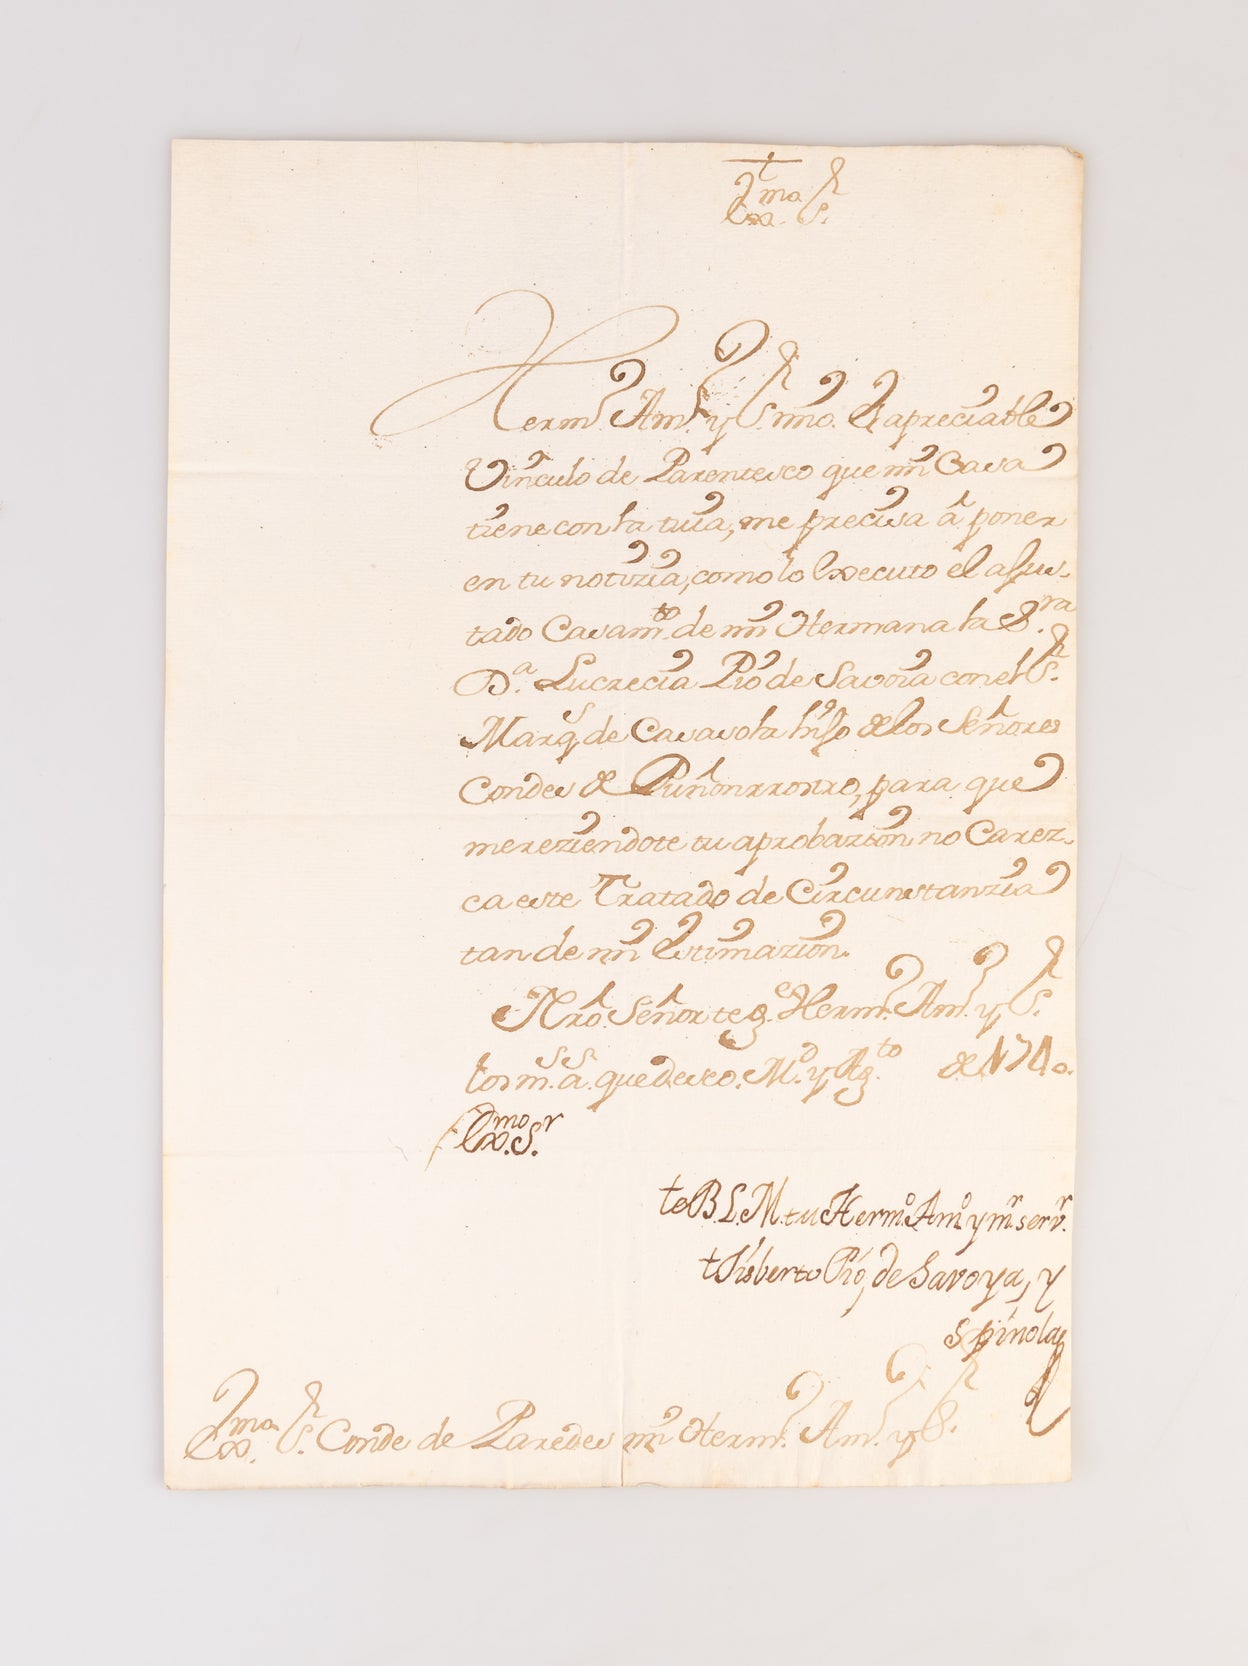 †
Ex.mo S.r
Herm.o Am.o y S.r mio. El apreciable
Vinculo de Parentesco que mi Casa
tiene con la tuia, me precisa â poner
en tu notizia, como lo Executo el ajus-
tado Casam.to de mi Hermana la S.ra
D.a Lucrecia Pio de Savoia con el S.r
Marq.s de Casasola hijo de los Señores
Condes de Puñonrrostro, para que
mereziendote tu aprobazion, no Carez-
ca este Tratado de Circunstanzia
tan de mi Estimazion.
Nrô Señor te g.e Herm.o Am.o y S.r
los m.s a.s que deseo. M.d y Ag.to de 1740.
Ex.mo S.r
te B L M tu Herm.o Am.o y m.r serv.r
Gisberto Pio, de Savoya, y
Spinola
Ex.mo S.r Conde de Paredes mi Herm.o Am.o y S.r